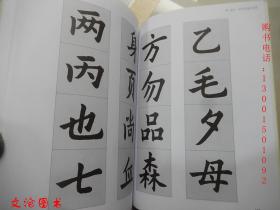 购书电话:13001501092
乙毛夕母
方勿品森
身頁尚血
两丙也七
文沧图书